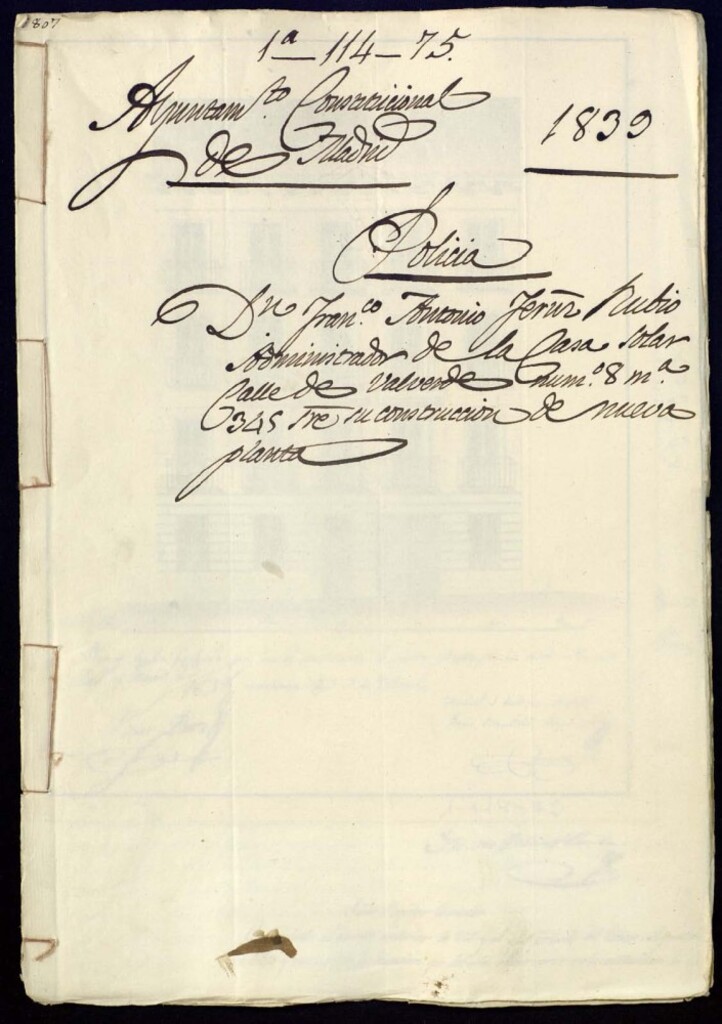 1807
1ª-114-75.
Ayuntam.to Constitucional
de Madrid
1839
Policia
Dn Fran.co Antonio Rubio
Administrador de la Casa solar
Calle de Valverde num.º 8 m.ª
345 sre su construccion de nueva
planta